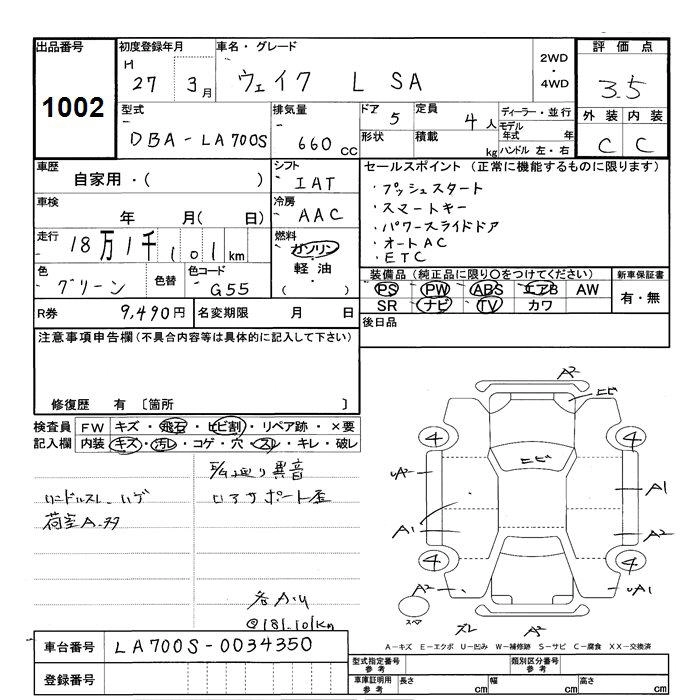 出品番号 初度登録年月 車名・グレード 2WD・4WD 評価点
1002 H 27 3月 ウェイク L SA 3.5
型式 排気量 ドア 5 定員 4人 ディーラー・並行 外装 内装
DBA-LA700S 660cc 形状 積載 kg モデル年式 年 ハンドル 左・右 C C
車歴 シフト セールスポイント (正常に機能するものに限ります)
自家用・( ) IAT ・プッシュスタート
車検 冷房 ・スマートキー
年 月( 日) AAC ・パワースライドドア
走行 燃料 ・オートAC
18万1千101km ガソリン ・ETC
色 色替 色コード 軽油 装備品(純正品に限り○をつけてください) 新車保証書
グリーン G55 ・( ) PS PW ABS エアB AW 有・無
R券 9,490円 名変期限 月 日 SR ナビ TV カワ
注意事項申告欄(不具合内容等は具体的に記入して下さい) 後日品
修復歴 有 〔箇所 〕
検査員 FW キズ・飛石・ヒビ割・リペア跡・×要
記入欄 内装 キズ・汚レ・コゲ・穴・スレ・キレ・破レ
異音
ハンドルスレ、ハゲ ロアサポート歪
荷室A.
各A.U
@181.101km
A2
ヒビ
4 4
A2 ヒビ
A1
A1 A2
4 4
A2 UA1
スレ A2
A-キズ E-エクボ U-凹み W-補修跡 S-サビ C-腐食 XX-交換済
車台番号 LA700S-0034350
型式指定番号 参考 類別区分番号 参考
登録番号 車庫証明用 参考 長さ cm 幅 cm 高さ cm